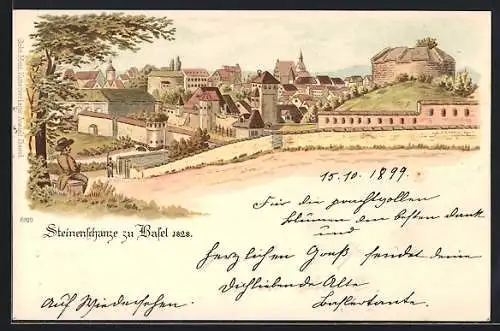 Steinenschanze zu Basel 1828.
15.10.1899.
Für die prachtvollen
blumen den besten dank
und
herzlichen Gruß sendet deine
Dichliebende Alte
Baslertante.
Auf Wiedersehen.